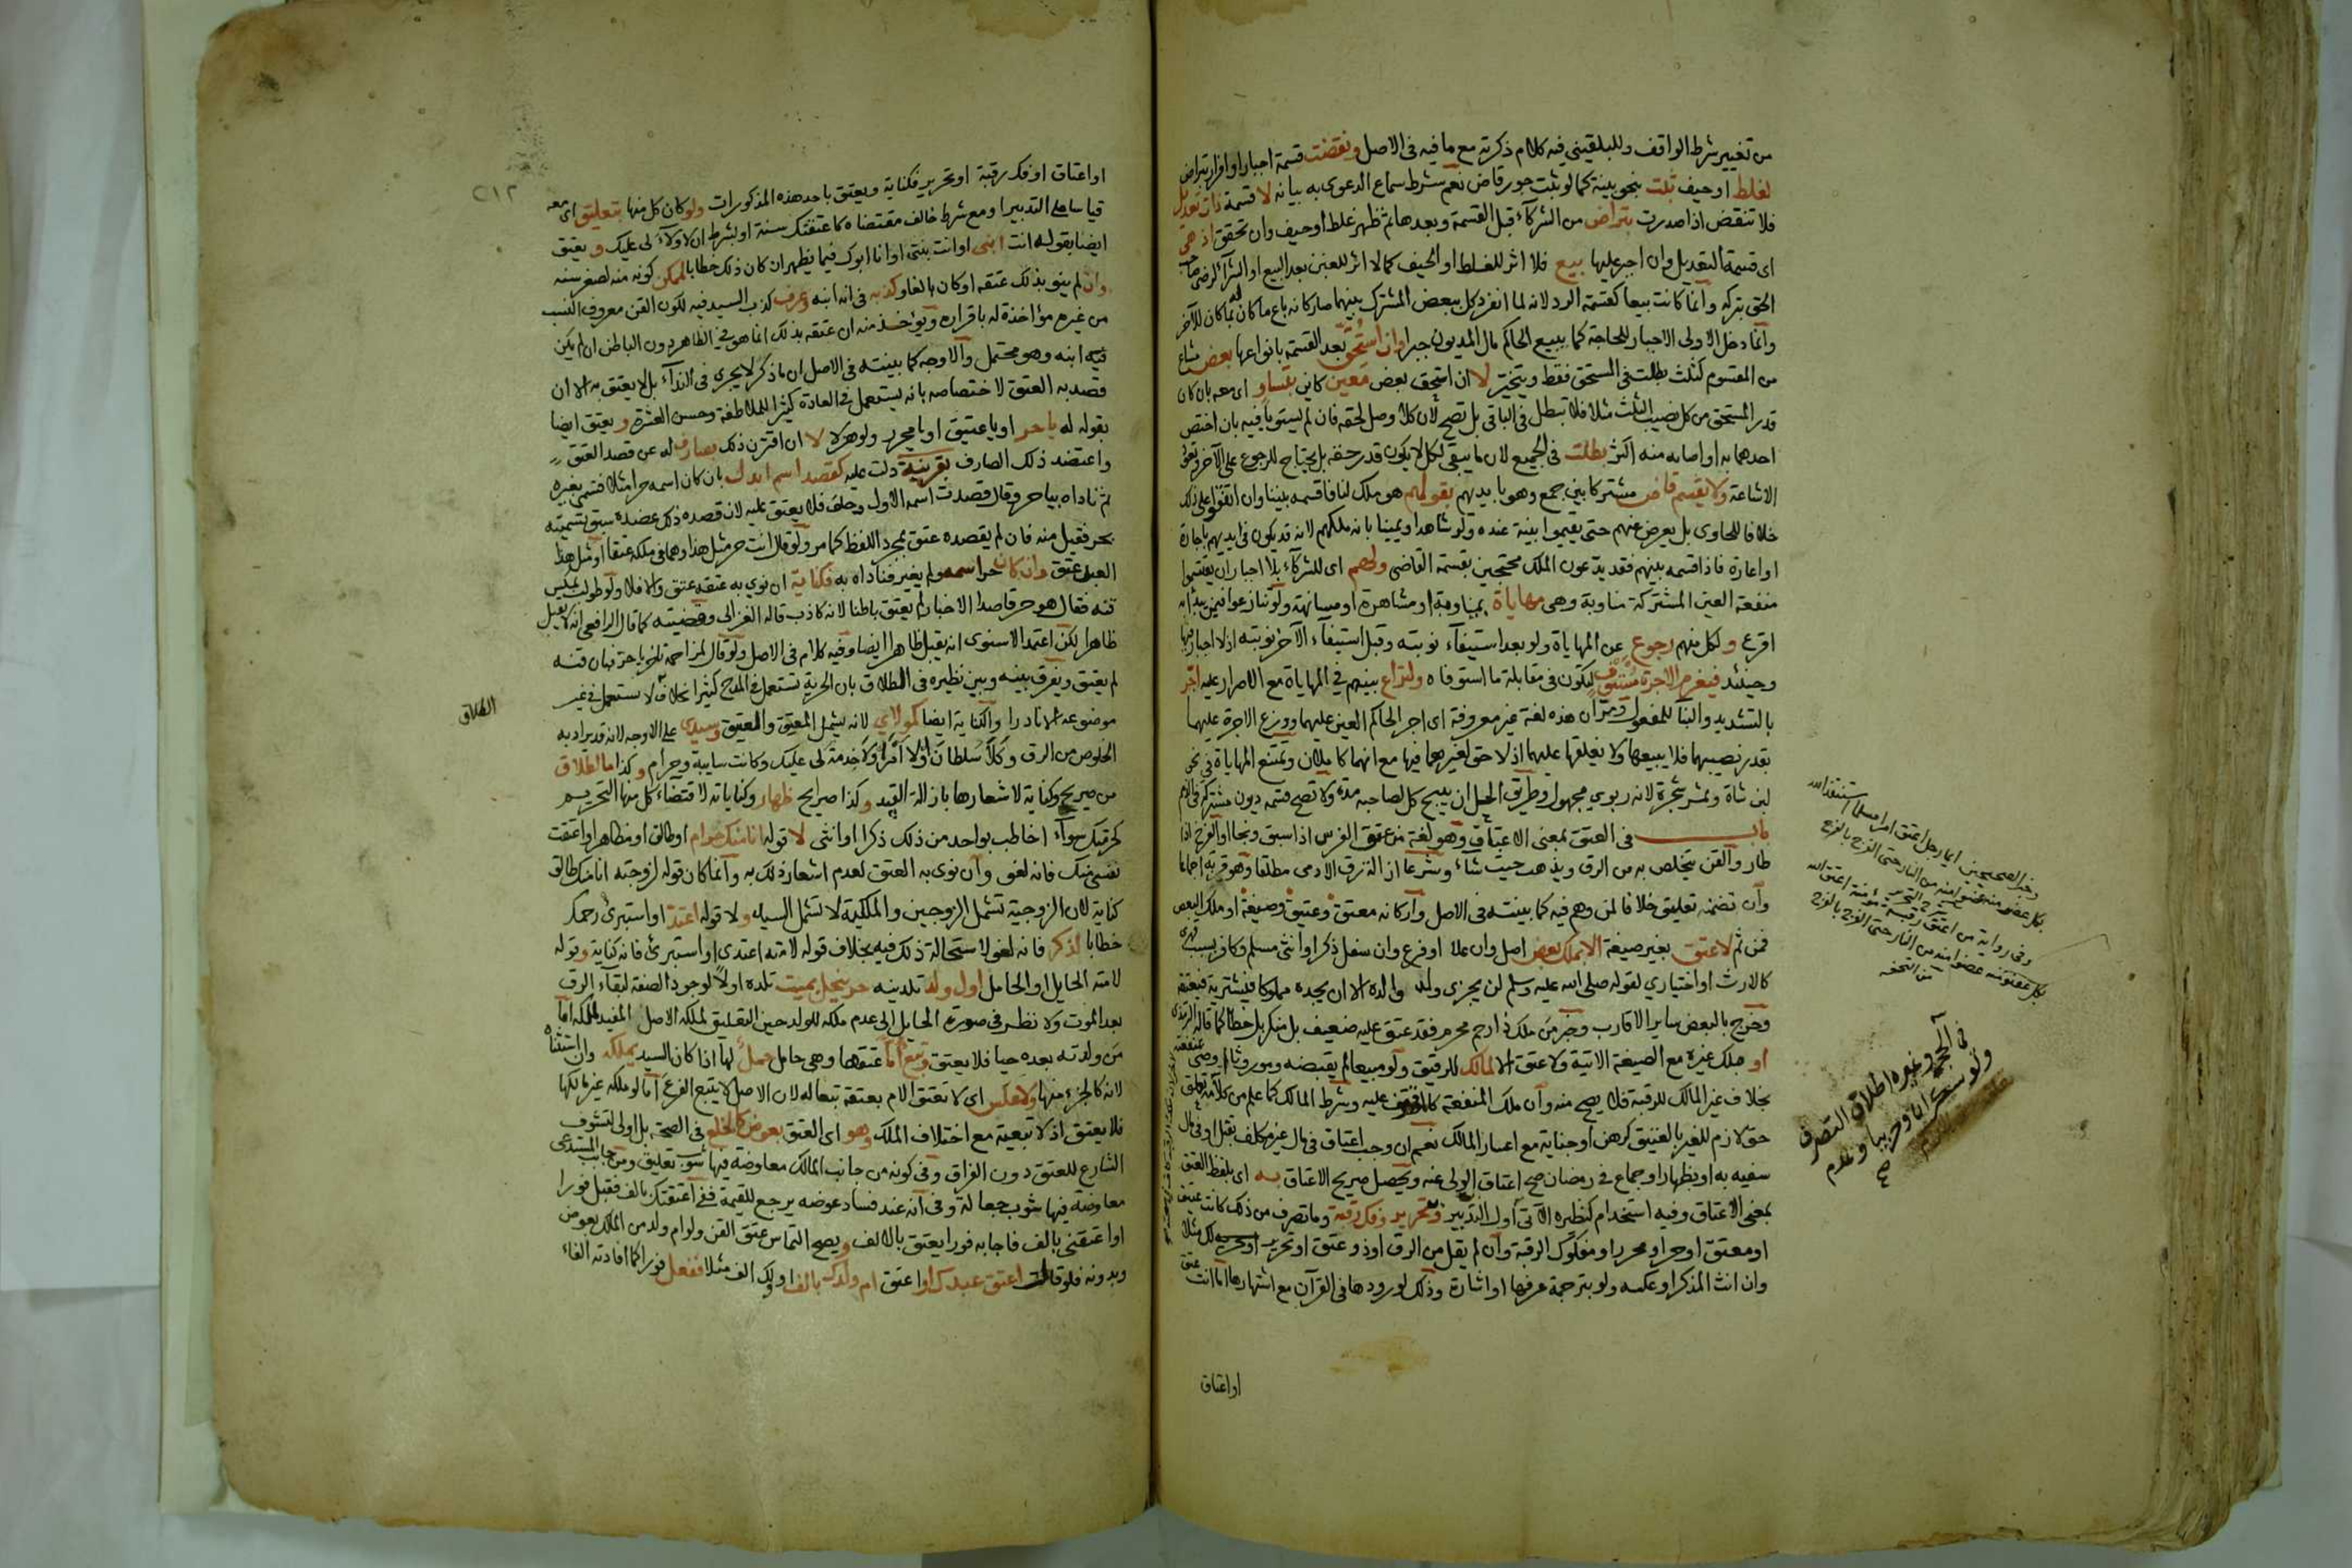 من تغيير شرط الواقف وللبلقيني فيه كلام ذكرته مع ما فيه في الاصل ونقضت قسمة اجبار او افراز بتراض
لغلط او حيف ثبت بنحو بينة كما لو ثبت جور قاض نعم شرط سماع الدعوى به بيانه لا قسمة ذات تعديل
فلا تنقض اذا صدرت بتراض من الشركآء قبل القسمة وبعدها ثم ظهر غلط او حيف وان تحقق اذ هي
اى قسمة التعديل وان اجبر عليها بيع فلا اثر للغلط او الحيف كما لا اثر للغبن بعد البيع او الشرآ لرضى صاحب
الحق بتركه وانما كانت بيعا كقسمة الرد لانه لما انفرد كل ببعض المشترك بينهما صار كانه باع ما كان له بما كان للآخر
وانما دخل الاولى الاجبار للحاجة كما يبيع الحاكم مال المديون جبرا وان استحق بعد القسمة بانواعها بعض مشاع
من المقسوم كثلث بطلت في المستحق فقط ويتخير لا ان استحق بعض معين كاين بتساو اى معه بان كان
قدر المستحق من كل نصيب الثلث مثلا فلا تبطل في الباقى بل تصح لان كلا وصل لحقه فان لم يستويا فيه بان اختص
احدهما به او اصابه منه اكثر بطلت فى الجميع لان ما يبقى لكل لا يكون قدر حقه بل يحتاج للرجوع على الآخر وتعود
الاشاعة ولا يقسم قاض مشتركا بين جمع وهو بايديهم بقولهم هو ملك لنا فاقسمه بيننا وان اتفقوا على ذلك
خلافا للحاوى بل يعرض عنهم حتى يقيموا بينة عنده ولو شاهدا ويمينا بانه ملكهم لانه قد يكون في ايديهم باجارة
او اعارة فاذا قسمه بينهم فقد يدعون الملك محتجين بقسمة القاضى ولهم اى للشركآء بلا اجبار ان يقسموا
منفعة العين المشتركة مناوبة وهى مهاياة بمياومة او مشاهرة او مسانهة ولو تنازعوا فيمن يبدا به
اقرع ولكل منهم رجوع عن المهاياة ولو بعد استيفآء نوبته وقبل استيفآء الآخر نوبته اذ لا اجبار فيها
وحينئذ فيغرم الاجرة مستوف لتكون في مقابلة ما استوفاه ولنزاع بينهم فى المهاياة مع الاصرار عليه اجر
بالتشديد والبنآ للمفعول ومر ان هذه لغة غير معروفة اى اجر الحاكم العين عليهما ووزع الاجرة عليهما
بقدر نصيبهما فلا يبيعها ولا يغلقها عليهما اذ لا حق لغيرهما فيها مع انهما كاملان وتمتنع المهاياة فى نحو
لبن شاة وثمر شجرة لانه ربوي مجهول وطريق الحيل ان يبيح كل لصاحبه مدة ولا تصح قسمة ديون مشتركة في الذمم
باب فى العتق بمعنى الاعتاق وهو لغة من عتق الفرس اذا سبق ونجا او الفرخ اذا
طار والقن يتخلص به من الرق ويذهب حيث شاء وشرعا ازالة الرق الادمى مطلقا وهو قربة اجماعا
وان تضمنه تعليق خلافا لمن وهم فيه كما بينته فى الاصل واركانه معتق وعتيق وصيغة او ملك البعض
فمن ثم لا عتق بغير صيغة الا بملك بعض اصل وان علا او فرع وان سفل ذكر او انثى مسلم وكافر بسبب قهرى
كالارث او اختياري لقوله صلى الله عليه وسلم لن يجزى ولد والده الا ان يجده مملوكا فيشتريه فيعتقه
وخرج بالبعض ساير الاقارب وخبر من ملك ذا رحم محرم فقد عتق عليه ضعيف بل منكر بل خطا كما قاله الترمذى
او ملك غيره مع الصيغة الاتية ولا عتق الا لمالك للرقيق ولو مبيعا لم يقبضه وموروثا او وصى بمنفعته
بخلاف غير المالك للرقبة فلا يصح منه وان ملك المنفعة كالموقوف عليه وشرط المالك كما علم من كلامه تعلق
حق لازم للغير بالعتيق كرهن او جناية مع اعسار المالك نعم ان وجب اعتاق فى مال غير مكلف بقتل او فى مال
سفيه به او بظهار او جماع في رمضان صح اعتاق الولى عنه ويحصل صريح الاعتاق به اى بلفظ العتق
بمعنى الاعتاق وفيه استخدام كنظيره الآتى اول التدبير وبتحرير وفك رقبة وما تصرف من ذلك كانت عتيق
او معتق او حر او محرر او مفكوك الرقبة وان لم يقل من الرق او ذو عتق او تحرير لك مثلا
وان انث المذكر او عكسه ولو بترجمة عرفها او اشارة وذلك لورودها فى القرآن مع اشتهارها اما انت عتق
او اعتاق
وخبر الصحيحين ايما رجل اعتق امرا مسلما استنقذ الله
بكل عضو منه عضوا منه من النار حتى الفرج بالفرج
وفى رواية من اعتق رقبة مؤمنة اعتق الله
بكل عضو منه عضوا منه من النار حتى الفرج بالفرج
من التحفه
اطلاق التصرف
٢١٢
او اعتاق او فك رقبة او تحرير فكناية ويعتق باحد هذه المذكورات ولو كان كل منها بتعليق اى معه
قياسا على التدبير او مع شرط خالف مقتضاه كاعتقتك سنة او بشرط ان لا ولآء لى عليك ويعتق
ايضا بقوله انت ابنى او انت بنتى او انا ابوك فيما يظهر ان كان ذلك خطابا لممكن كونه منه لصغر سنه
وان لم ينو بذلك عتقه او كان بالغا وكذبه فى انه ابنه وعرف كذب السيد فيه لكون القن معروف النسب
من غيره مؤاخذة له باقراره ويؤخذ منه ان عتقه بذلك انما هو فى الظاهر دون الباطن ان لم يكن
فيه ابنه وهو محتمل والاوجه كما بينته فى الاصل ان ما ذكر لا يجرى فى الندآء بل لا يعتق به الا ان
قصد به العتق لاختصاصه بانه يستعمل فى العادة كثيرا للملاطفة وحسن العشرة ويعتق ايضا
بقوله له ياحر او يا عتيق او يا محرر ولو هزلا لا ان اقترن ذلك بصارف له عن قصد العتق
واعتضد ذلك الصارف بقرينة دلت عليه كقصد اسم ابدل بان كان اسمه حرا مثلا فسمى بغيره
ثم ناداه بياحر وقال قصدت اسمه الاول وحلف فلا يعتق عليه لان قصده ذلك عضده سبق تسميته
بحر فقبل منه فان لم يقصده عتق بمجرد اللفظ كما مر ولو قال انت حر مثل هذا وهما فى ملكه عتقا او مثل هذا
العبد عتق وان كان حر اسمه ولم يغير فناداه به فكناية ان نوى به عتقه عتق والا فلا ولو طولب بمكس
قنه فقال هو حر قاصدا الاخبار لم يعتق باطنا لانه كاذب قاله الغزالى وقضيته كما قال الرافعى انه لا يقبل
ظاهرا لكن اعتمد الاسنوى انه يقبل ظاهرا ايضا وفيه كلام فى الاصل ولو قال لمزاحمة تاخر ياحرة فبان قنه
لم يعتق ويفرق بينه وبين نظيره فى الطلاق بان الحرية تستعمل فى المدح كثيرا بخلافه لا يستعمل فى غير
موضوعه الا نادرا والكناية ايضا كمولاي لانه يشمل المعتق والعتيق وسيدى على الاوجه لانه قد يراد به
الخلوص من الرق وكلا سلطان ولا امر ولا خدمة لى عليك وكانت سايبة وحرام وكذا ما لطلاق
من صريح وكناية لاشعارها بازالة القيد وكذا صرايح ظهار وكناياته لاقتضاء كل منها التحريم
كحرمتك سوآء اخاطب بواحد من ذلك ذكرا او انثى لا قوله انا منك حرام او طالق او مظاهر او اعتقت
نفسى منك فانه لغو وان نوى به العتق لعدم اشعار ذلك به وانما كان قوله لزوجته انا منك طالق
كناية لان الزوجية تشمل الزوجين والملكية لا تشمل السيد ولا قوله اعتد او استبرئ رحمك
خطابا لذكر فانه لغو لاستحالة ذلك فيه بخلاف قوله لامته اعتدى او استبرئ فانه كناية وقوله
لامته الحايل او الحامل اول ولد تلدينه حر ينحل بميت تلده اولا لوجود الصفة لبقآء الرق
بعد الموت ولا نظر فى صورة الحايل الى عدم ملكه للولد حين التعليق لملكه الاصل المفيد لملكه اما
من ولدته بعده حيا فلا يعتق وتبع اما عتقها وهى حامل حمل لها اذا كان السيد يملكه وان استثناه
لانه كالجزء منها ولا عكس اى لا تعتق الام بعتقه تبعا له لان الاصل لا يتبع الفرع اما لو ملكه غير مالكها
فلا يعتق اذ لا تبعية مع اختلاف الملك وهو اى العتق بعوض كالخلع فى الصحة بل اولى لتشوف
الشارع للعتق دون الفراق وفى كونه من جانب المالك معاوضة فيها شوب تعليق ومن جانب المستدعى
معاوضة فيها شوب جعالة وفى انه عند فساد عوضه يرجع للقيمة ففى اعتقتك بالف فقبل فورا
او اعتقنى بالف فاجابه فورا يعتق بالالف ويصح التماس عتق القن ولو ام ولد من الملك بعوض
وبدونه فلو قال اعتق عبدك او اعتق ام ولدك بالف او لك الف مثلا ففعل فورا كما افادته الفاء
الطلاق